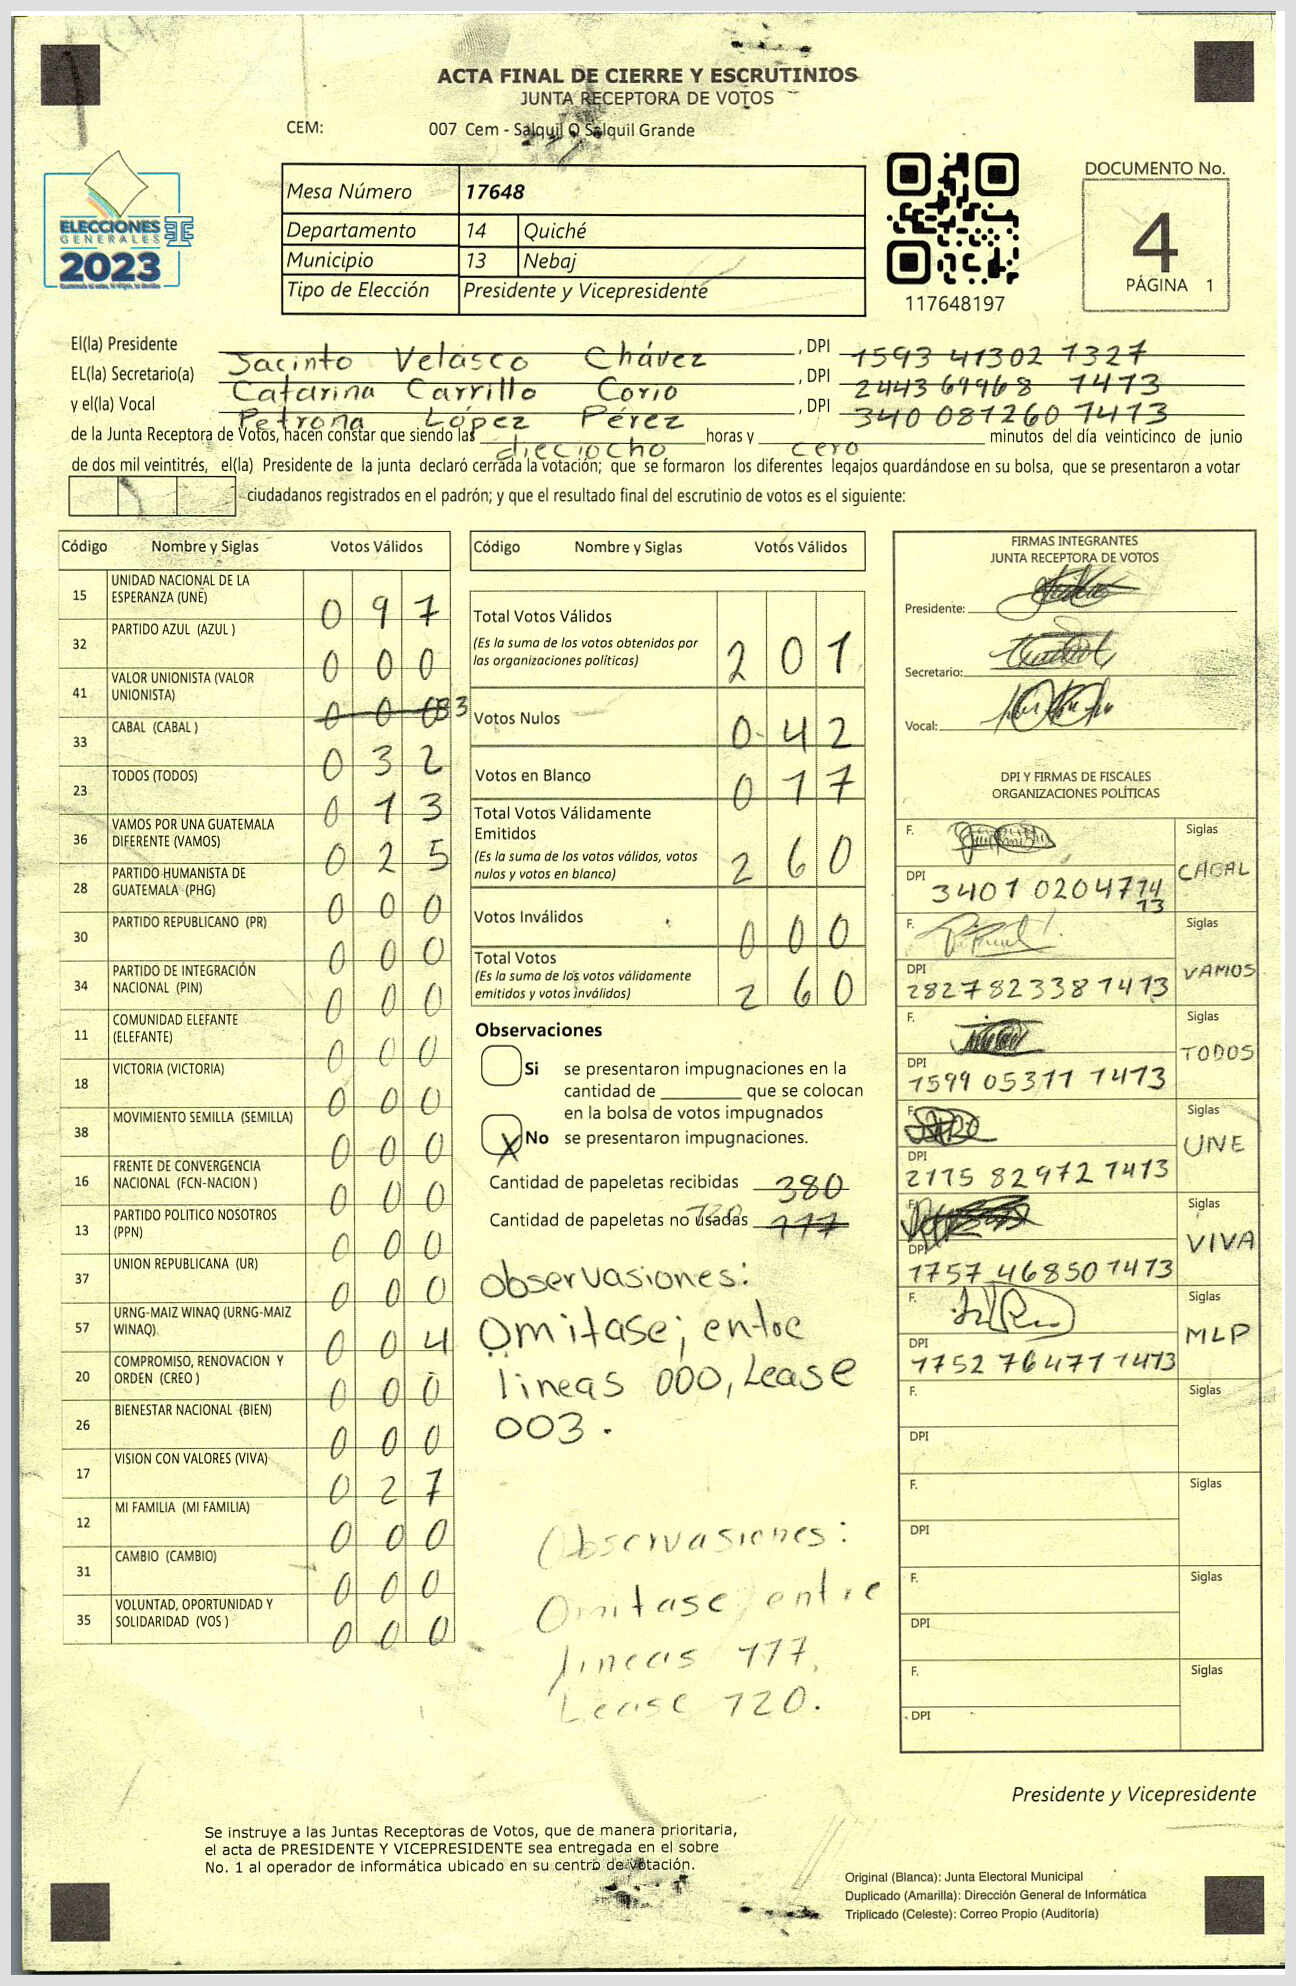 ACTA FINAL DE CIERRE Y ESCRUTINIOS
JUNTA RECEPTORA DE VOTOS
CEM: 007 Cem - Salquil O Salquil Grande
ELECCIONES
GENERALES
2023
Mesa Número 17648
Departamento 14 Quiché
Municipio 13 Nebaj
Tipo de Elección Presidente y Vicepresidente
117648197
DOCUMENTO No.
4
PÁGINA 1
El(la) Presidente Jacinto Velasco Chávez , DPI 1593 41302 1327
EL(la) Secretario(a) Catarina Carrillo Corio , DPI 2443 69968 1413
y el(la) Vocal Petrona López Pérez , DPI 340 081260 1413
de la Junta Receptora de Votos, hacen constar que siendo las dieciocho horas y cero minutos del día veinticinco de junio
de dos mil veintitrés, el(la) Presidente de la junta declaró cerrada la votación; que se formaron los diferentes legajos quardándose en su bolsa, que se presentaron a votar
ciudadanos registrados en el padrón; y que el resultado final del escrutinio de votos es el siguiente:
Código Nombre y Siglas Votos Válidos
15 UNIDAD NACIONAL DE LA ESPERANZA (UNE) 097
32 PARTIDO AZUL (AZUL ) 000
41 VALOR UNIONISTA (VALOR UNIONISTA) 000 3
33 CABAL (CABAL ) 032
23 TODOS (TODOS) 013
36 VAMOS POR UNA GUATEMALA DIFERENTE (VAMOS) 025
28 PARTIDO HUMANISTA DE GUATEMALA (PHG) 000
30 PARTIDO REPUBLICANO (PR) 000
34 PARTIDO DE INTEGRACIÓN NACIONAL (PIN) 000
11 COMUNIDAD ELEFANTE (ELEFANTE) 000
18 VICTORIA (VICTORIA) 000
38 MOVIMIENTO SEMILLA (SEMILLA) 000
16 FRENTE DE CONVERGENCIA NACIONAL (FCN-NACION ) 000
13 PARTIDO POLITICO NOSOTROS (PPN) 000
37 UNION REPUBLICANA (UR) 000
57 URNG-MAIZ WINAQ (URNG-MAIZ WINAQ) 004
20 COMPROMISO, RENOVACION Y ORDEN (CREO ) 000
26 BIENESTAR NACIONAL (BIEN) 000
17 VISION CON VALORES (VIVA) 027
12 MI FAMILIA (MI FAMILIA) 000
31 CAMBIO (CAMBIO) 000
35 VOLUNTAD, OPORTUNIDAD Y SOLIDARIDAD (VOS ) 000
Código Nombre y Siglas Votos Válidos
Total Votos Válidos 201
(Es la suma de los votos obtenidos por
las organizaciones políticas)
Votos Nulos 042
Votos en Blanco 017
Total Votos Válidamente
Emitidos 260
(Es la suma de los votos válidos, votos
nulos y votos en blanco)
Votos Inválidos 000
Total Votos 260
(Es la suma de los votos válidamente
emitidos y votos inválidos)
Observaciones
Si se presentaron impugnaciones en la
cantidad de que se colocan
en la bolsa de votos impugnados
X No se presentaron impugnaciones.
Cantidad de papeletas recibidas 380
Cantidad de papeletas no usadas 117 120
observasiones:
Omitase; entre
lineas 000, Lease
003.
Observasiones:
Omitase; entre
lineas 117,
Lease 120.
FIRMAS INTEGRANTES
JUNTA RECEPTORA DE VOTOS
Presidente:
Secretario:
Vocal:
DPI Y FIRMAS DE FISCALES
ORGANIZACIONES POLÍTICAS
F. Siglas
DPI 3401 020471413 CABAL
F. Siglas
DPI 2827823381413 VAMOS
F. Siglas
DPI 1599 05311 1413 TODOS
F. Siglas
DPI 2175 82972 1413 UNE
F. Siglas
DPI 1757 46850 1413 VIVA
F. Siglas
DPI 1752 76471 1413 MLP
F. Siglas
DPI
F. Siglas
DPI
F. Siglas
DPI
F. Siglas
DPI
Presidente y Vicepresidente
Se instruye a las Juntas Receptoras de Votos, que de manera prioritaria,
el acta de PRESIDENTE Y VICEPRESIDENTE sea entregada en el sobre
No. 1 al operador de informática ubicado en su centro de votación.
Original (Blanca): Junta Electoral Municipal
Duplicado (Amarilla): Dirección General de Informática
Triplicado (Celeste): Correo Propio (Auditoría)